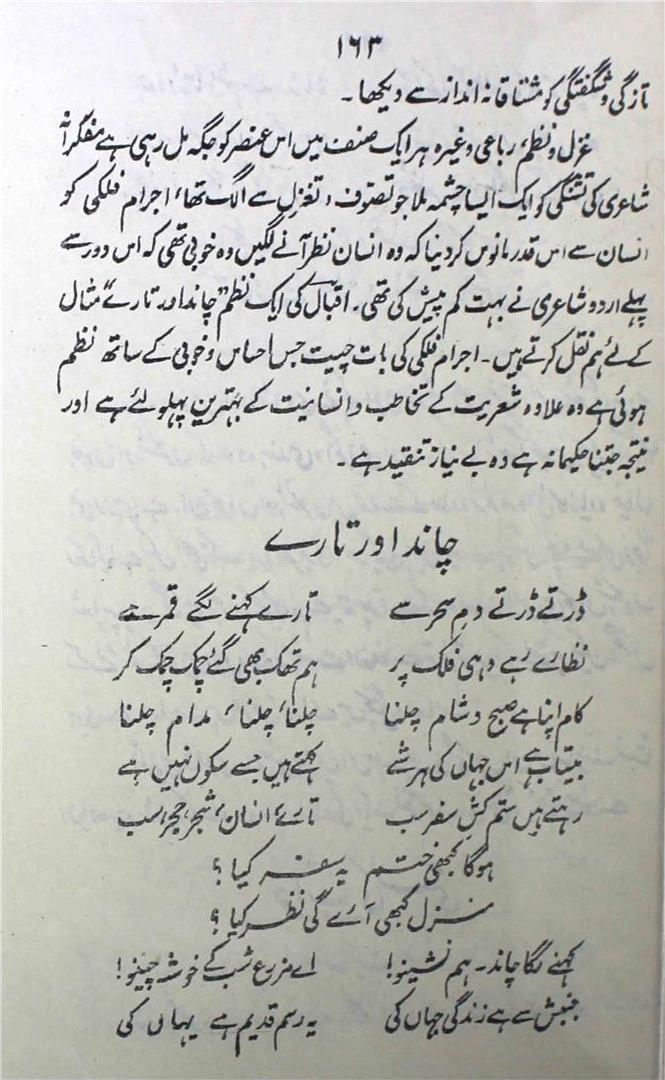 ۱۶۳
تازگی و شگفتگی کو مشتاقانہ انداز سے دیکھا۔
غزل و نظم، رباعی وغیرہ ہر ایک صنف میں اس عنصر کو جگہ مل رہی ہے مفکرانہ
شاعری کی تشنگی کو ایک ایسا چشمہ ملا جو تصوف و تغزل سے الگ تھا، اجرام فلکی کو
انسان سے اس قدر مانوس کر دینا کہ وہ انسان نظر آنے لگیں وہ خوبی تھی کہ اس دور سے
پہلے اردو شاعری نے بہت کم پیش کی تھی۔ اقبالؔ کی ایک نظم ”چاند اور تارے“ مثال
کے لئے ہم نقل کرتے ہیں۔ اجرام فلکی کی بات چیت جس احساس و خوبی کے ساتھ نظم
ہوئی ہے وہ علاوہ شعریت کے تخاطب و انسانیت کے بہترین پہلو لئے ہے اور
نتیجہ جتنا حکیمانہ ہے وہ بے نیاز تنقید ہے۔
چاند اور تارے
ڈرتے ڈرتے دمِ سحر سے تارے کہنے لگے قمر سے
نظارے رہے وہی فلک پر ہم تھک بھی گئے چمک چمک کر
کام اپنا ہے صبح و شام چلنا چلنا، چلنا، مدام چلنا
بیتاب ہے اس جہاں کی ہر شے کہتے ہیں جسے سکوں نہیں ہے
رہتے ہیں ستم کشِ سفر سب تارے، انسان، شجر، حجر، سب
ہوگا کبھی ختم یہ سفر کیا؟
منزل کبھی آئے گی نظر کیا؟
کہنے لگا چاند۔ ہم نشینو! اے مزرع شب کے خوشہ چینو!
جنبش سے ہے زندگی جہاں کی یہ رسم قدیم ہے یہاں کی